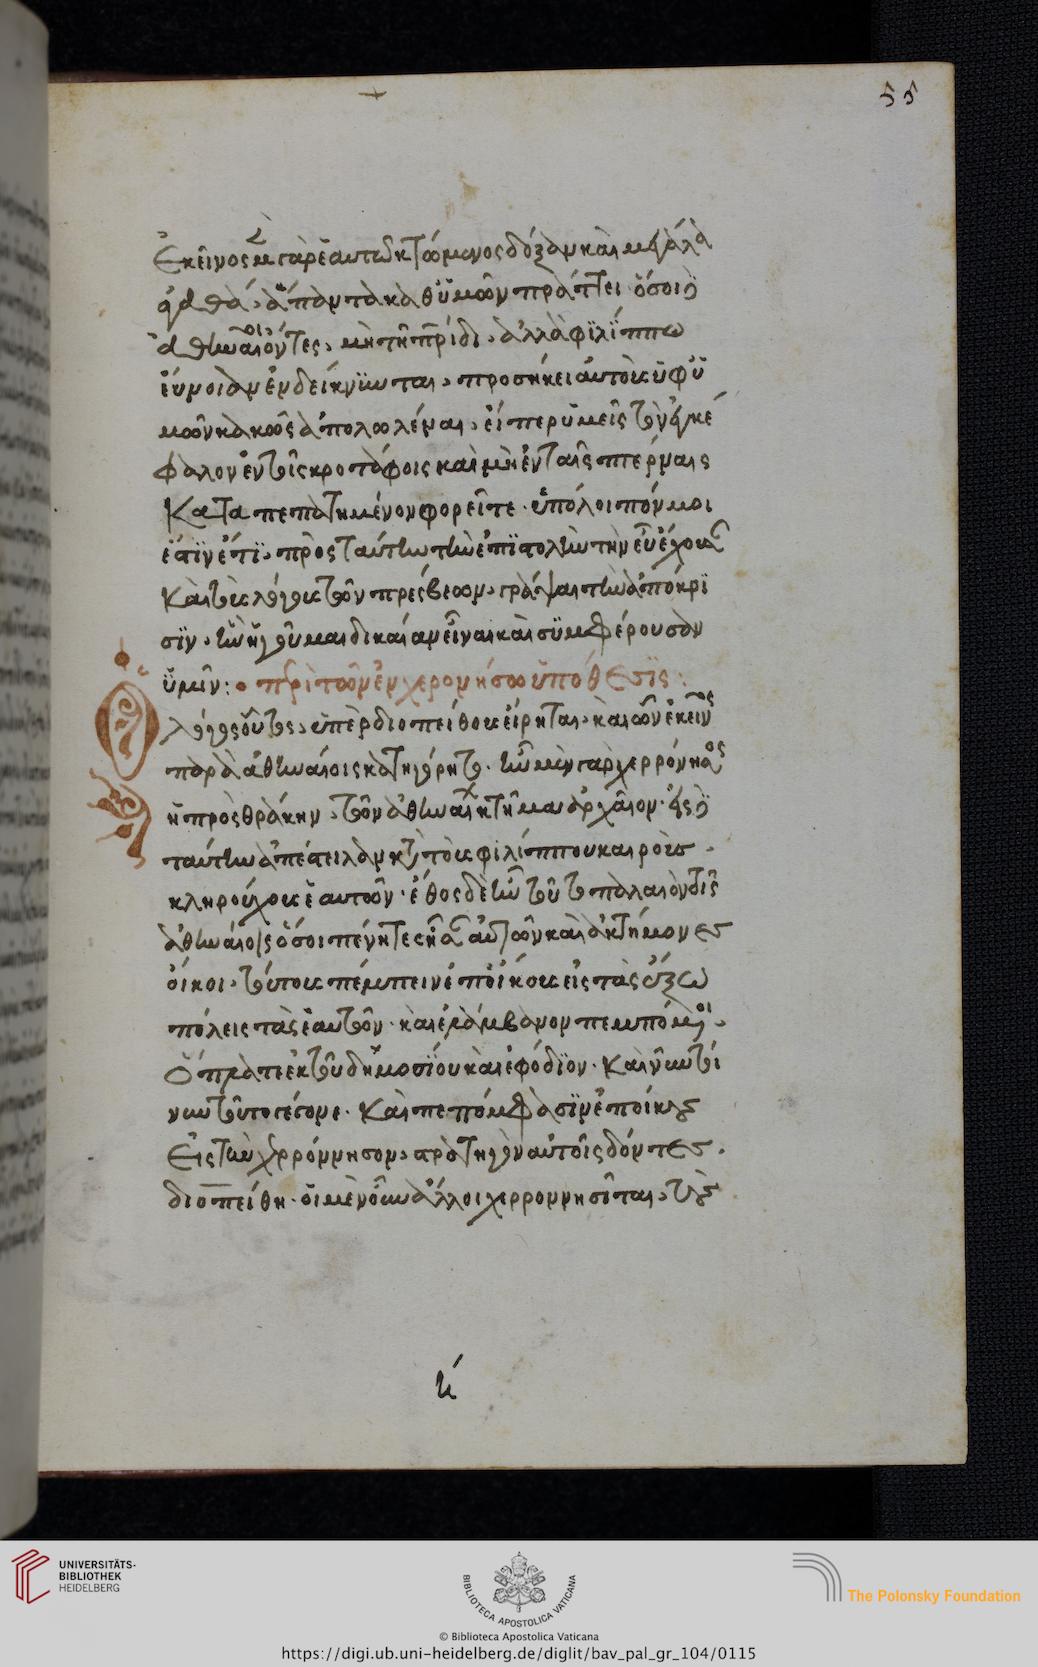 Ἐκεῖνος μὲν γὰρ ἑαυτῶ κτώμενος δόξαν καὶ μεγάλα
ἀγαθά, ἅπαντα καθ' ὑμῶν πράττει· ὅσοι δ'
ἀθηναῖοι ὄντες, μὴ τῆ πρίδι, ἀλλὰ φιλίππω
εὔνοιαν ἐνδείκνυνται, προσήκει αὐτοὺς ὑφ' ὑ
μῶν κακῶς ἀπολωλέναι, εἴπερ ὑμεῖς τὸν ἐγκέ
φαλον ἐν τοῖς κροτάφοις καὶ μὴ ἐν ταῖς πτέρναις
Καταπεπατημένον φορεῖτε· ὑπόλοιπόν μοι
ἐστὶν ἔτι, πρὸς ταύτην τὴν ἐπιστολὴν τὴν εὖ ἔχουσαν
Καὶ τοὺς λόγους τῶν πρέσβεων, γράψαι τὴν ἀπόκρι
σιν, ἣν ἡγοῦμαι δικαίαν εἶναι καὶ συμφέρουσαν
ὑμῖν: περὶ τῶν ἐν χερονήσω ὑπόθεσις:
Ὁ λόγος οὗτος, ὑπὲρ διοπείθους εἴρηται, καὶ ὧν ἐκεῖνος
παρὰ ἀθηναίοις κατηγόρητο. ἦν μὲν γὰρ χερρόνησος
ἡ πρὸς θράκην, τῶν ἀθηναίων κτῆμα ἀρχαῖον· εἰς δὲ
ταύτην ἀπέστειλαν κατὰ τοὺς φιλίππου καιροὺς
κληρούχους ἑαυτῶν· ἔθος δὲ ἦν τοῦτο παλαιὸν τοῖς
ἀθηναίοις ὅσοι πένητες ἦσαν αὐτῶν καὶ ἀκτήμονες
οἴκοι, τούτους πέμπειν ἐποίκους εἰς τὰς ἔξω
πόλεις τὰς ἑαυτῶν· καὶ ἐλάμβανον πεμπόμενοι,
Ὅπλα τε ἐκ τοῦ δημοσίου καὶ ἐφόδιον· Καὶ νῦν τοί
νυν τοῦτο γέγονε· Καὶ πεπόμφασιν ἐποίκους
Εἰς τὴν χερρόννησον, στρατηγὸν αὐτοῖς δόντες
διοπείθη· οἱ μὲν οὖν ἄλλοι χερροννησῖται, τοὺς
55
UNIVERSITÄTS-
BIBLIOTHEK
HEIDELBERG
BIBLIOTECA APOSTOLICA VATICANA
The Polonsky Foundation
© Biblioteca Apostolica Vaticana
https://digi.ub.uni-heidelberg.de/diglit/bav_pal_gr_104/0115